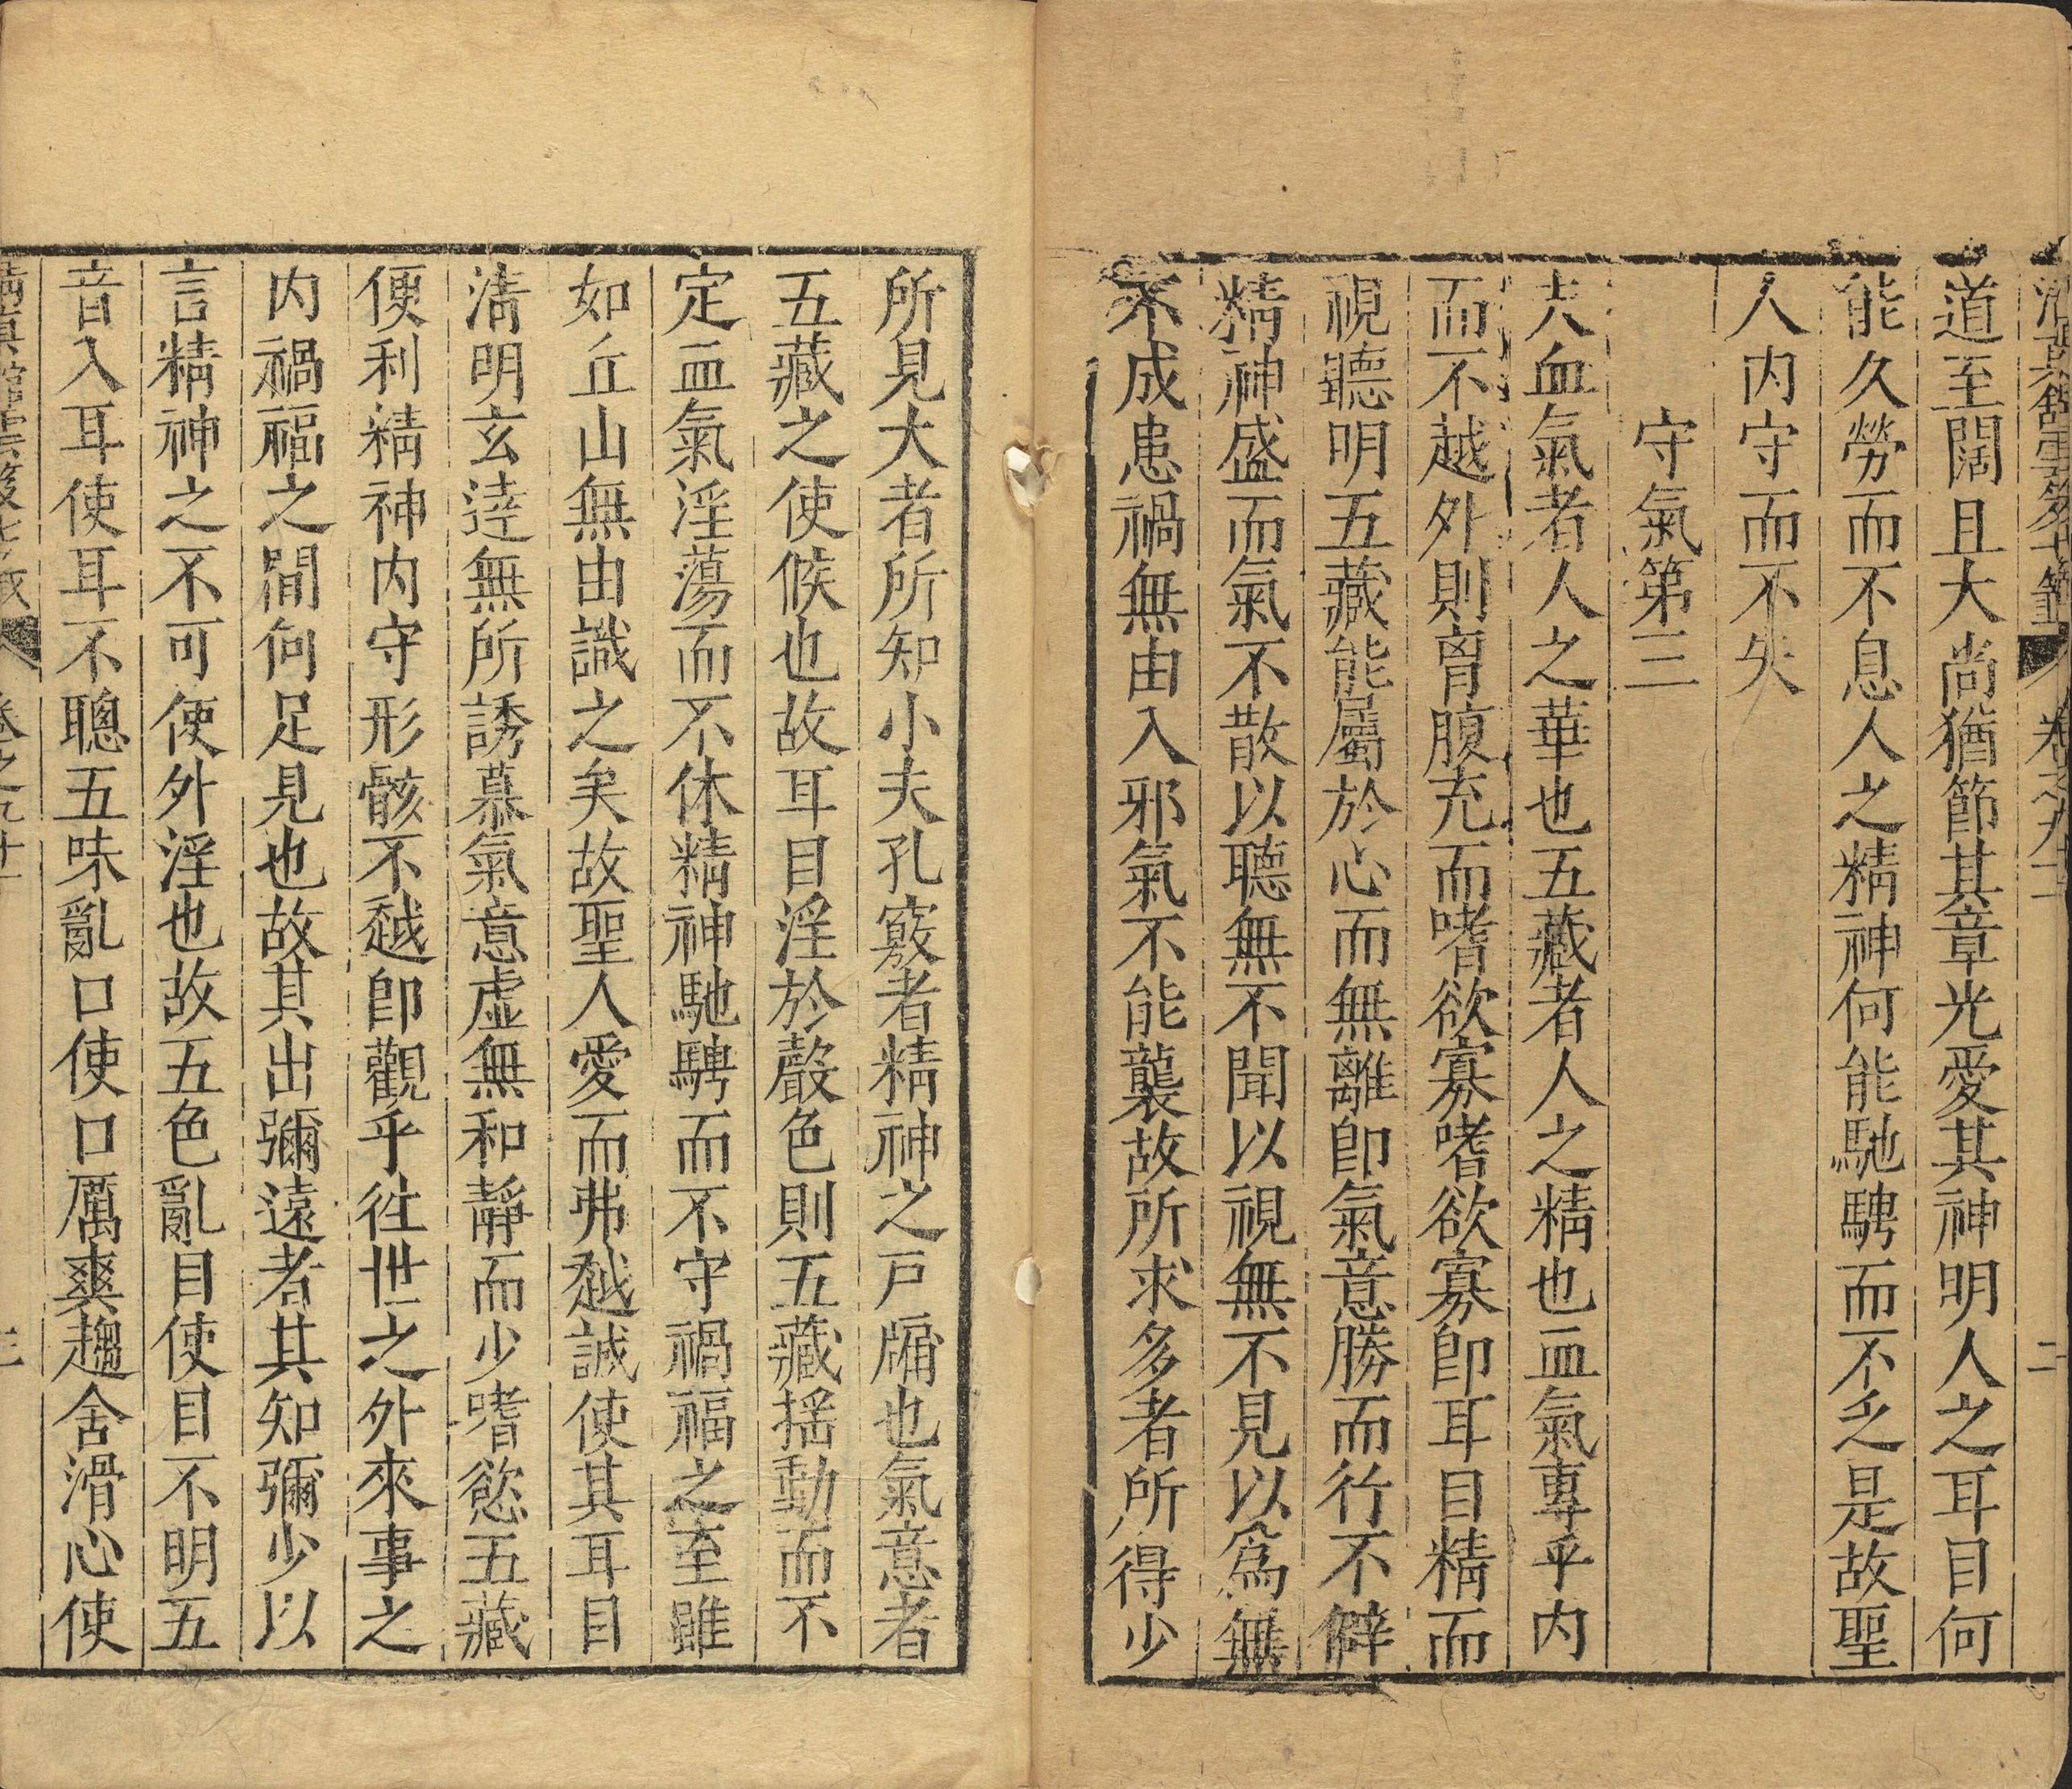 清真館雲笈七籤 卷之九十一 二
道至闊且大尚猶節其章光愛其神明人之耳目何
能久勞而不息人之精神何能馳騁而不乏是故聖
人内守而不失
守氣第三
夫血氣者人之華也五藏者人之精也血氣專乎内
而不越外則胷腹充而嗜欲寡嗜欲寡卽耳目精而
視聽明五藏能屬於心而無離卽氣意勝而行不僻
精神盛而氣不散以聽無不聞以視無不見以爲無
不成患禍無由入邪氣不能襲故所求多者所得少
所見大者所知小夫孔竅者精神之戸牖也氣意者
五藏之使候也故耳目淫於聲色則五藏揺動而不
定血氣淫蕩而不休精神馳騁而不守禍福之至雖
如丘山無由識之矣故聖人愛而弗越誠使其耳目
淸明玄逹無所誘慕氣意虛無和靜而少嗜慾五藏
便利精神内守形骸不越卽觀乎徃世之外來事之
内禍福之間何足見也故其出彌遠者其知彌少以
言精神之不可使外淫也故五色亂目使目不明五
音入耳使耳不聰五味亂口使口厲爽趨舍滑心使
清真館雲笈七籤 卷之九十一 三